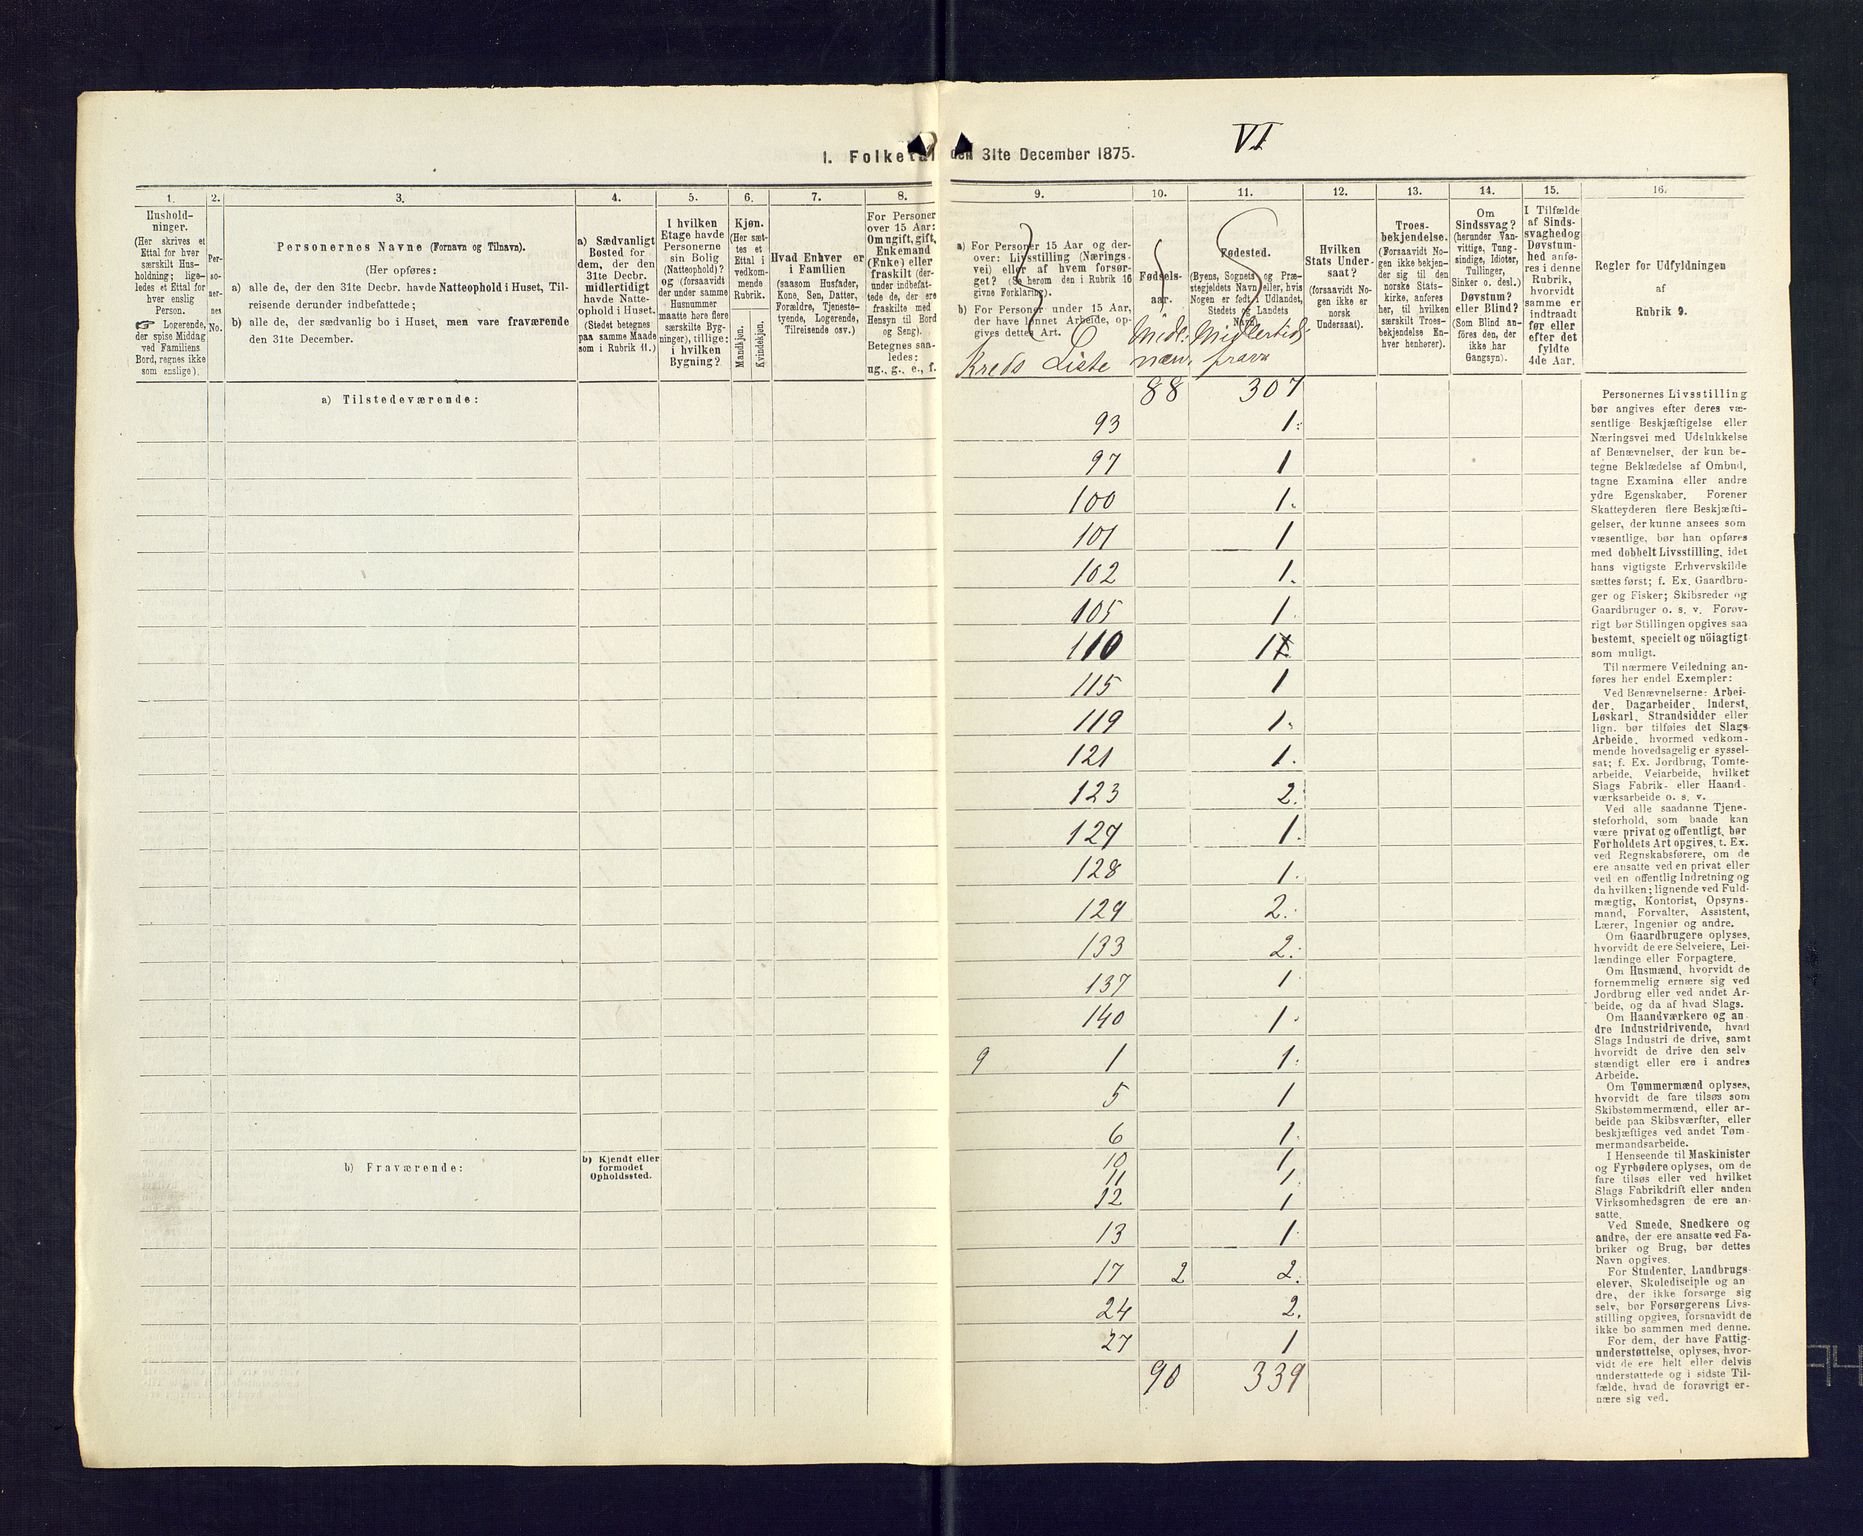 VI
1. Folketal den 31te December 1875.
1.
Hushold-
ninger.
(Her skrives et
Ettal for hver
særskilt Hus-
holdning; lige-
ledes et Ettal for
hver enslig
Person.
☞ Logerende,
der spise Middag
ved Familiens
Bord, regnes ikke
som enslige).
2.
Per-
so-
ner-
nes
No.
3.
Personernes Navne (Fornavn og Tilnavn).
(Her opføres:
a) alle de, der den 31te Decbr. havde Natteophold i Huset, Til-
reisende derunder indbefattede;
b) alle de, der sædvanlig bo i Huset, men vare fraværende
den 31te December.
4.
a) Sædvanligt
Bosted for
dem, der den
31te Decbr.
midlertidigt
havde Natte-
ophold i Huset.
(Stedet betegnes
paa samme Maade
som i Rubrik 11.)
5.
I hvilken
Etage havde
Personerne
sin Bolig
(Natteophold)?
og (forsaavidt
der under samme
Husnummer
maatte høre flere
særskilte Byg-
ninger), tillige:
i hvilken
Bygning?
6.
Kjøn.
(Her sæt-
tes et
Ettal i
vedkom-
mende
Rubrik.
Mandkjøn.
Kvindekjøn.
7.
Hvad Enhver er
i Familien
(saasom Husfader,
Kone, Søn, Datter,
Forældre, Tjeneste-
tyende, Logerende,
Tilreisende osv.)
8.
For Personer
over 15 Aar:
Om ugift, gift,
Enkemand
(Enke) eller
fraskilt (der-
under indbefat-
tede de, der ere
fraskilte med
Hensyn til Bord
og Seng).
Betegnes saa-
ledes:
ug., g., e., f.
9.
a) For Personer 15 Aar og der-
over: Livsstilling (Nærings-
vei) eller af hvem forsør-
get? (Se herom den i Rubrik 16
givne Forklaring).
b) For Personer under 15 Aar,
der have lønnet Arbeide, op-
gives dettes Art.
Kreds Liste
10.
Fødsels-
aar.
Midl:
nærv.
11.
Fødested.
(Byens, Sognets og Præ-
stegjeldets Navn eller, hvis
Nogen er født i Udlandet,
Stedets og Landets
Navn).
Midlertid.
fravær
12.
Hvilken
Stats Under-
saat?
(forsaavidt No-
gen ikke er
norsk
Undersaat).
13.
Troes-
bekjendelse.
(Forsaavidt No-
gen ikke bekjen-
der sig til den
norske Stats-
kirke, anføres
her, til hvilket
særskilt Troes-
bekjendelse En-
hver henhører).
14.
Om
Sindssvag?
(herunder Van-
vittige, Tung-
sindige, Idioter,
Tullinger,
Sinker o. desl.)
Døvstum?
eller Blind?
(Som Blind an-
føres den, der
ikke har
Gangsyn).
15.
I Tilfælde
af Sinds-
svaghed og
Døvstum-
hed anfø-
res i denne
Rubrik,
hvorvidt
samme er
indtraadt
før eller
efter det
fyldte
4de Aar.
16.
Regler for Udfyldningen
af
Rubrik 9.
a) Tilstedeværende:
b) Fraværende:
b) Kjendt eller
formodet
Opholdssted.
88 307
93 1.
97 1
100 1.
101 1
102 1.
105 1.
110 1
115 1
119 1.
121 1.
123 2.
127 1.
128 1.
129 2.
133 2.
137 1
140 1.
9 1 1.
5 1
6 1.
10 1
11 1.
12 1
13 1.
17 2 2.
24 2.
27 1
90 339
Personernes Livsstilling
bør angives efter deres væ-
sentlige Beskjæftigelse eller
Næringsvei med Udelukkelse
af Benævnelser, der kun be-
tegne Beklædelse af Ombud,
tagne Examina eller andre
ydre Egenskaber. Forener
Skatteyderen flere Beskjæfti-
gelser, der kunne ansees som
væsentlige, bør han opføres
med dobbelt Livsstilling, idet
hans vigtigste Erhvervskilde
sættes først; f. Ex. Gaardbru-
ger og Fisker; Skibsreder og
Gaardbruger o. s. v. Forøv-
rigt bør Stillingen opgives saa
bestemt, specielt og nöiagtigt
som muligt.
Til nærmere Veiledning an-
føres her endel Exempler:
Ved Benævnelserne: Arbei-
der, Dagarbeider, Inderst,
Løskarl, Strandsidder eller
lign. bør tilføies det Slags
Arbeide, hvormed vedkom-
mende hovedsagelig er syssel-
sat; f. Ex. Jordbrug, Tomte-
arbeide, Veiarbeide, hvilket
Slags Fabrik- eller Haand-
værksarbeide o. s. v.
Ved alle saadanne Tjene-
steforhold, som baade kan
være privat og offentligt, bør
Forholdets Art opgives, t. Ex.
ved Regnskabsførere, om de
ere ansatte ved en privat eller
ved en offentlig Indretning og
da hvilken; lignende ved Fuld-
mægtig, Kontorist, Opsyns-
mand, Forvalter, Assistent,
Lærer, Ingeniør og andre.
Om Gaardbrugere oplyses,
hvorvidt de ere Selveiere, Lei-
lændinge eller Forpagtere.
Om Husmænd, hvorvidt de
fornemmelig ernære sig ved
Jordbrug eller ved andet Ar-
beide, og da af hvad Slags.
Om Haandværkere og an-
dre Industridrivende, hvad
Slags Industri de drive, samt
hvorvidt de drive den selv-
stændigt eller ere i andres
Arbeide.
Om Tømmermænd oplyses,
hvorvidt de fare tilsøs som
Skibstømmermænd, eller ar-
beide paa Skibsværfter, eller
beskjæftiges ved andet Tøm-
mermandsarbeide.
I Henseende til Maskinister
og Fyrbødere oplyses, om de
fare tilsøs eller ved hvilket
Slags Fabrikdrift eller anden
Virksomhedsgren de ere an-
satte.
Ved Smede, Snedkere og
andre, der ere ansatte ved Fa-
briker og Brug, bør dettes
Navn opgives.
For Studenter, Landbrugs-
elever, Skoledisciple og an-
dre, der ikke forsørge sig
selv, bør Forsørgerens Livs-
stilling opgives, forsaavidt de
ikke bo sammen med denne.
For dem, der have Fattig-
understøttelse, oplyses, hvor-
vidt de ere helt eller delvis
understøttede og i sidste Til-
fælde, hvad de forøvrigt er-
nære sig ved.